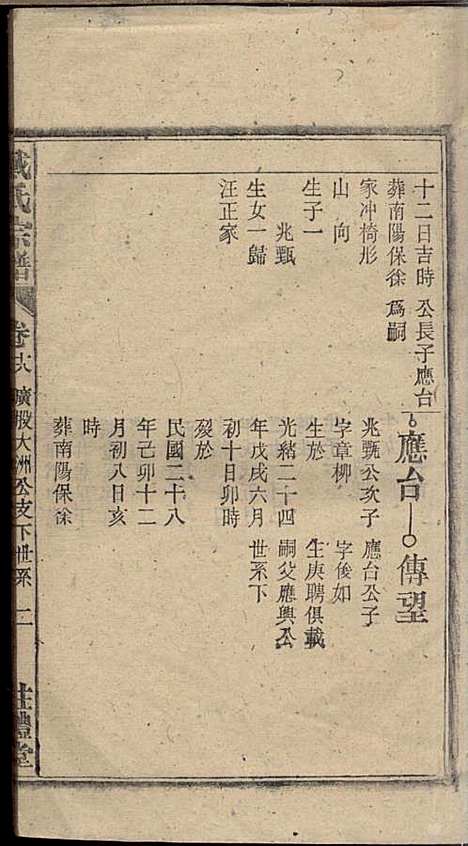 十二日吉時
葬南陽保徐
家冲椅形
山 向
生子一
兆甄
生女一歸
汪正家
公長子應台
為嗣
應台
兆甄公次子
字章柳
生於
光緒二十四
年戊戌六月
初十日卯時
歿於
民國二十八
年己卯十二
月初八日亥
時
葬南陽保徐
傳望
應台公子
字後如
生庚聘俱載
嗣父應輿公
世系下
戴氏宗譜
卷 廣股大洲公支下世系 二
禮堂